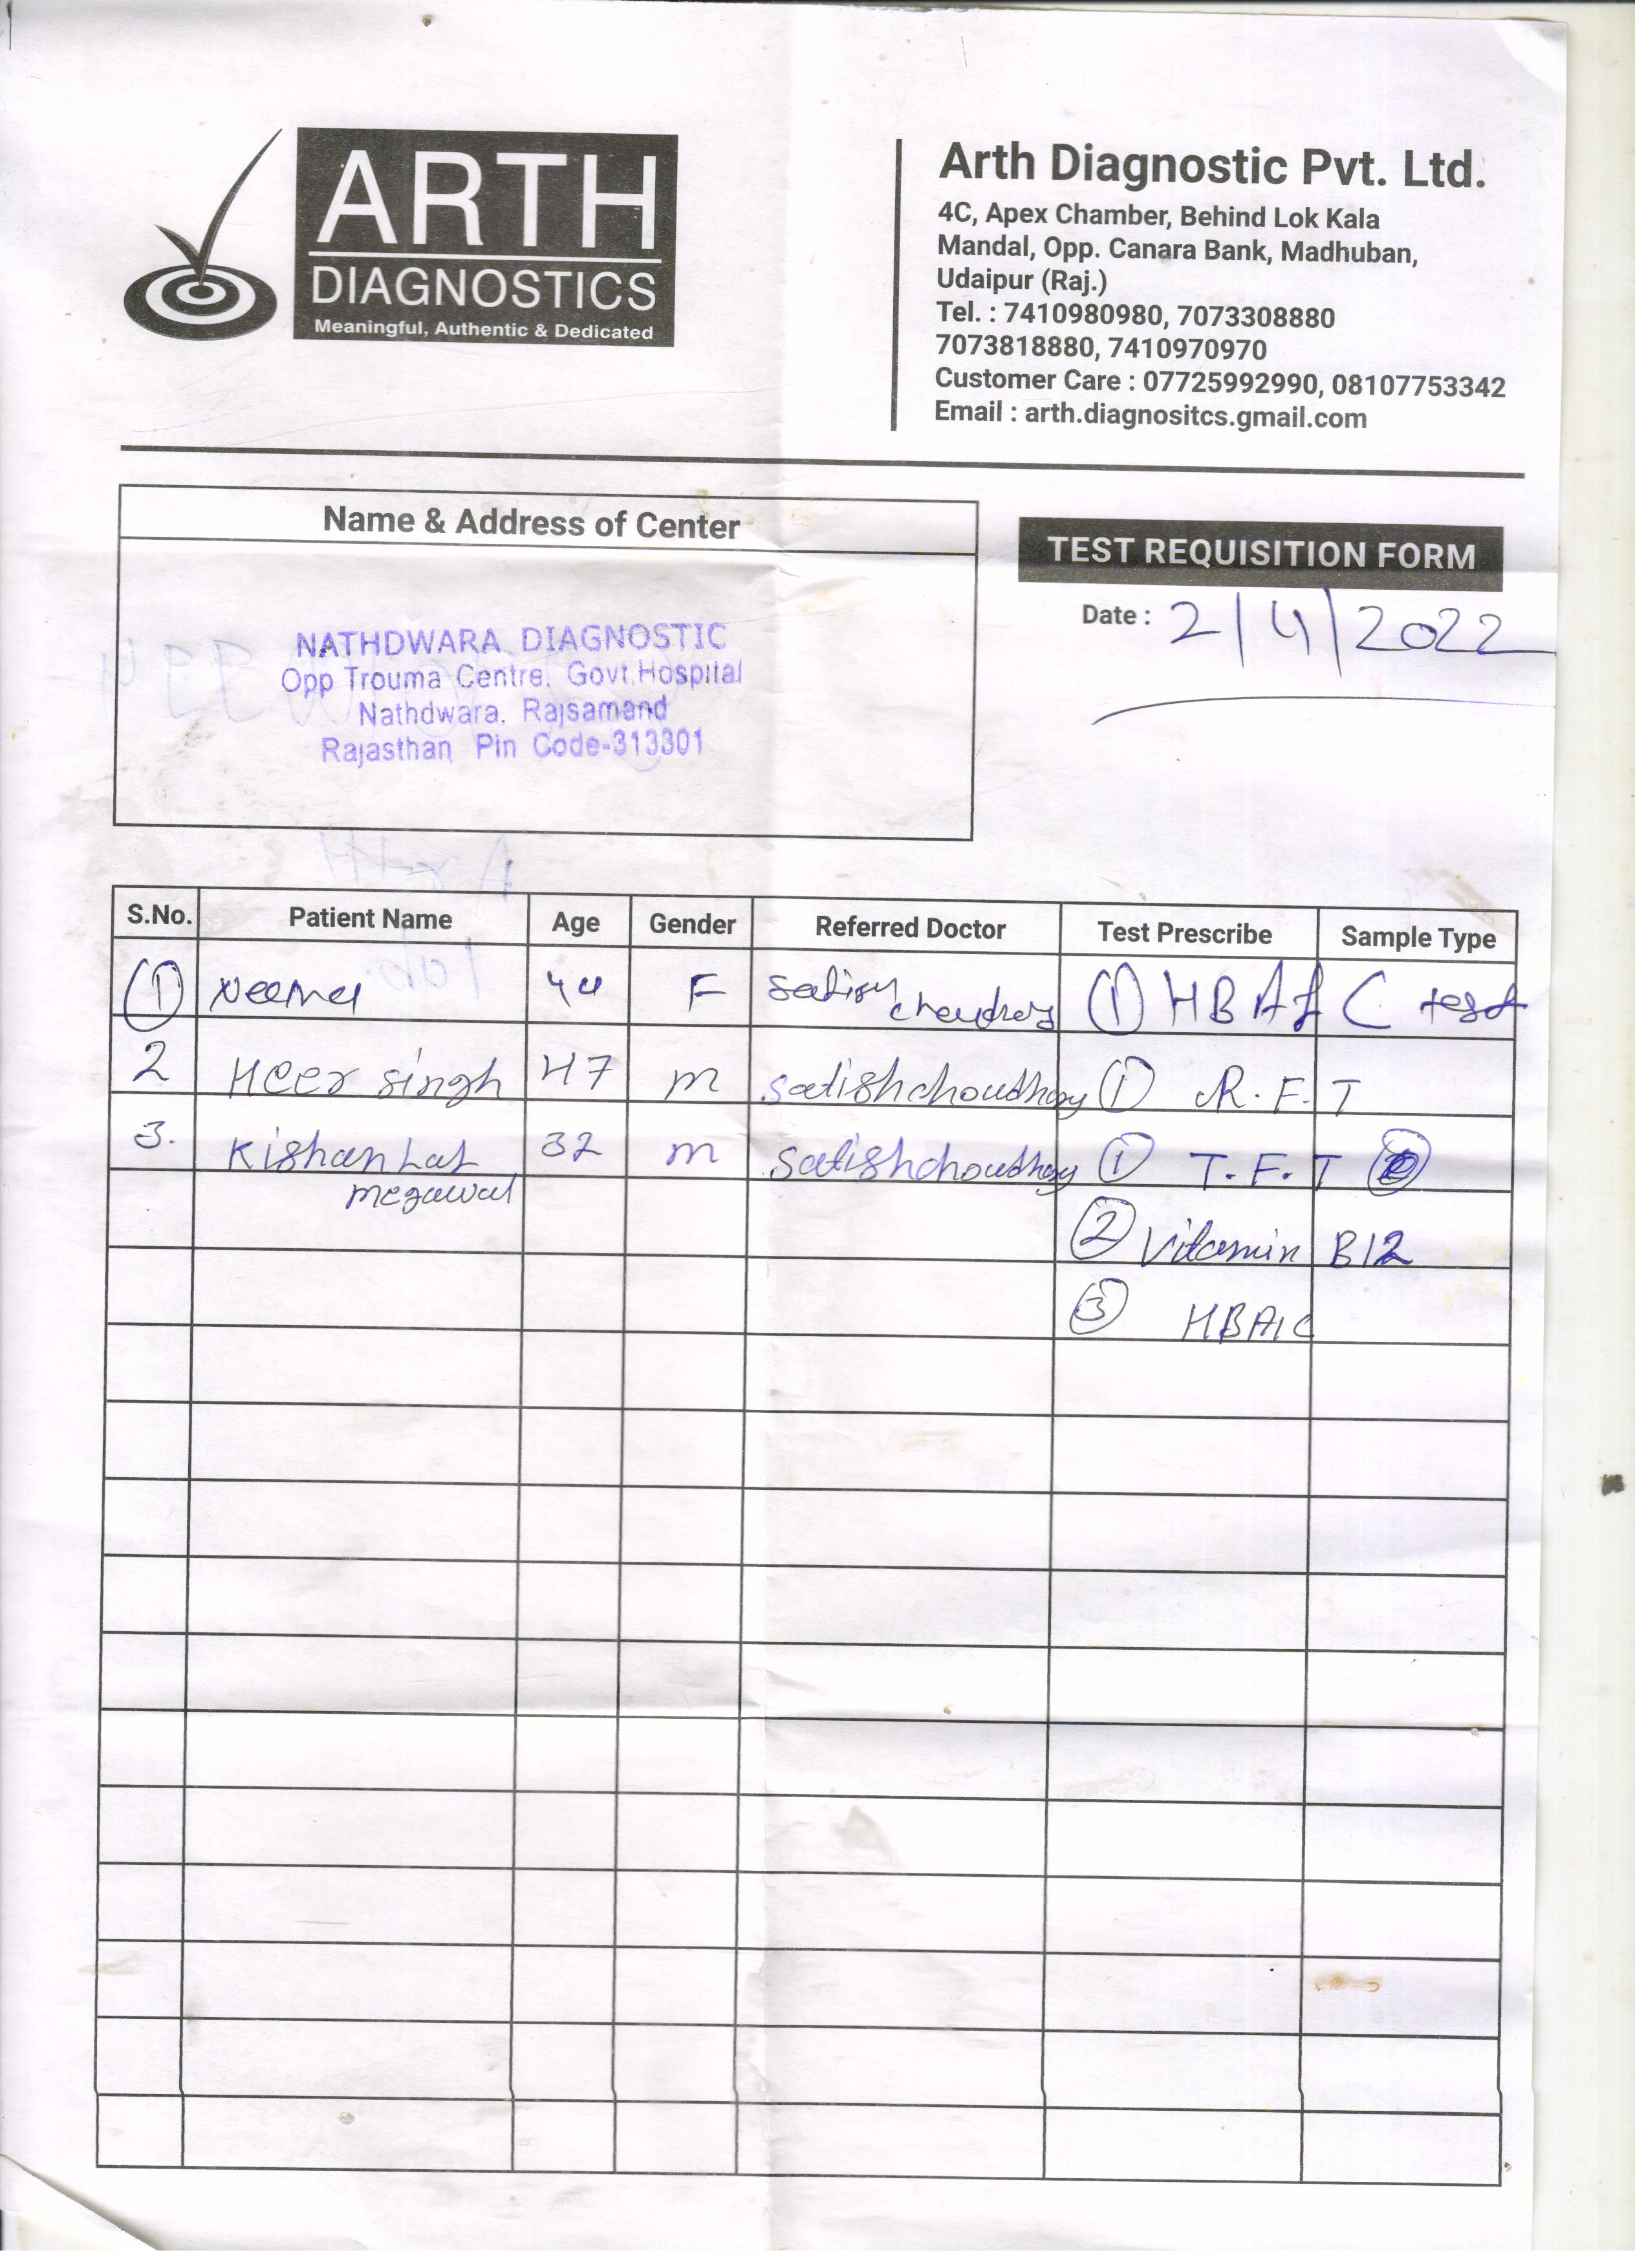 ARTH
DIAGNOSTICS
Meaningful, Authentic & Dedicated
Arth Diagnostic Pvt. Ltd.
4C, Apex Chamber, Behind Lok Kala
Mandal, Opp. Canara Bank, Madhuban,
Udaipur (Raj.)
Tel. : 7410980980, 7073308880
7073818880, 7410970970
Customer Care : 07725992990, 08107753342
Email : arth.diagnositcs.gmail.com
Name & Address of Center
NATHDWARA DIAGNOSTIC
Opp Trouma Centre. Govt.Hospital
Nathdwara. Rajsamand
Rajasthan Pin Code-313301
TEST REQUISITION FORM
Date : 2/4/2022
S.No. Patient Name Age Gender Referred Doctor Test Prescribe Sample Type
1 44 F 1 HBA1C test
2 Heer singh 47 m satishchoudhary 1 R.F.T
3. Kishan Lal 32 m satishchoudhary 1 T.F.T
megawal
2 Vitamin B12
3 HBA1C